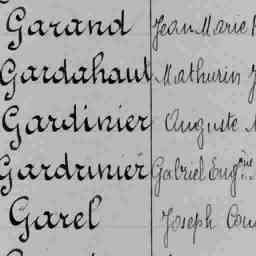 Garand Jean Marie
Gardahaut Mathurin
Gardinier Auguste
Gardrinier Gabriel Eugène
Garel Joseph